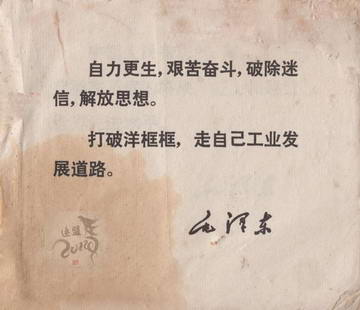 自力更生，艰苦奋斗，破除迷
信，解放思想。
打破洋框框，走自己工业发
展道路。
毛泽东